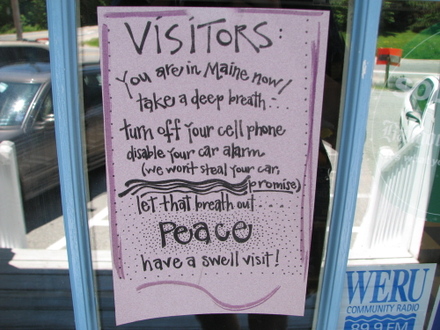 VISITORS:
You are in Maine now!
take a deep breath...
turn off your cell phone
disable your car alarm
(we won't steal your car,
promise)
let that breath out....
Peace
have a swell visit!
WERU
COMMUNITY RADIO
89.9 FM